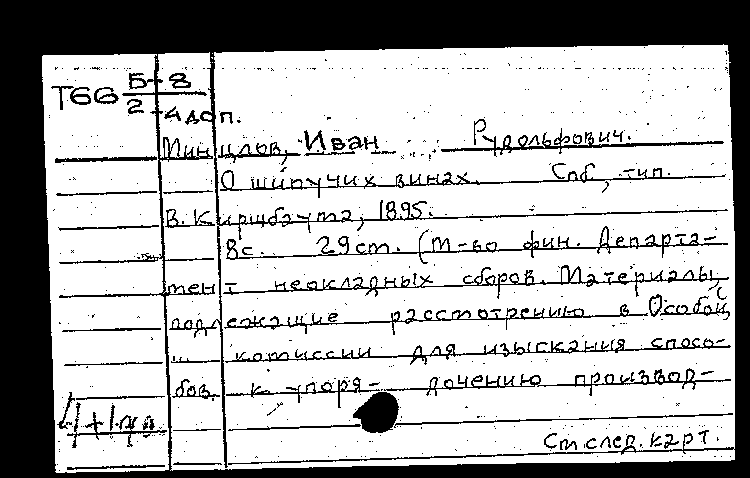 Т66 5-8
2-4 доп.
Минцлов, Иван Рудольфович.
О шипучих винах. Спб, тип.
В. Киршбаума, 1895.
8с. 29см. (М-во фин. Департа-
мент неокладных сборов. Материалы,
подлежащие рассмотрению в Особой
" комиссии для изыскания спосо-
бов. к упоря- дочению производ-
См след. карт.